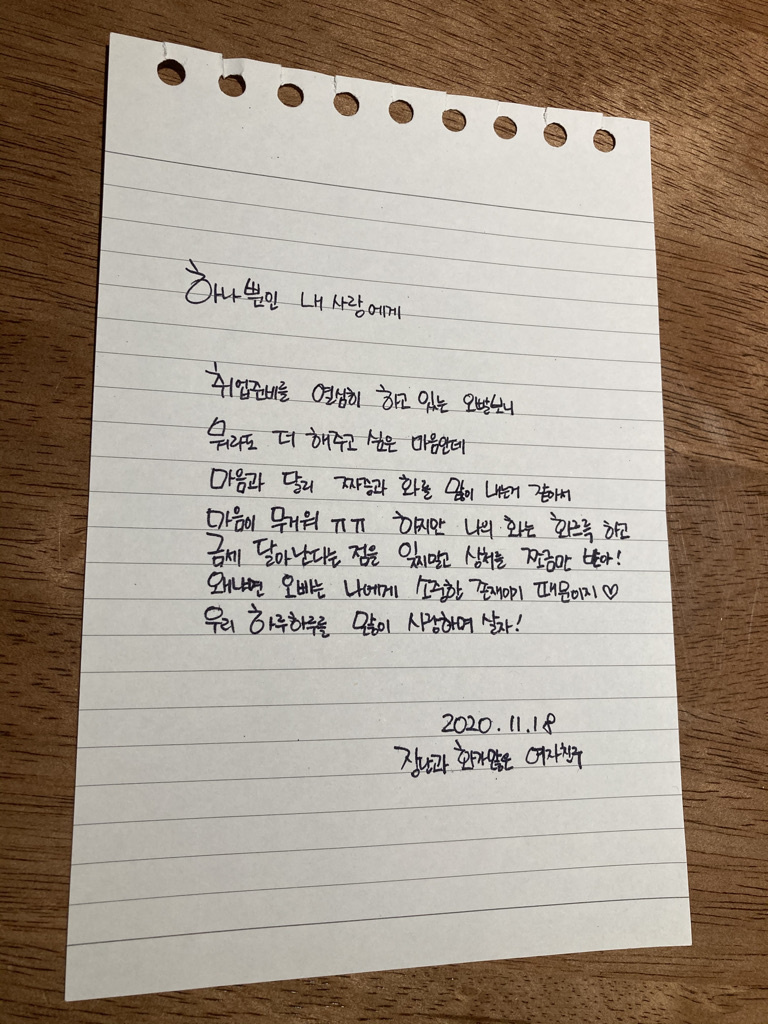 하나뿐인 내 사랑에게
취업준비를 열심히 하고 있는 오빨보니
뭐라도 더 해주고 싶은 마음인데
마음과 달리 짜증과 화를 많이 내는거 같아서
마음이 무거워 ㅠㅠ 하지만 나의 화는 화르륵 하고
금세 달아난다는 점을 잊지말고 상처를 쪼금만 받아!
왜냐면 오빠는 나에게 소중한 존재이기 때문이지♡
우리 하루하루를 많이 사랑하며 살자!
2020.11.18
장난과 화가많은 여자친구